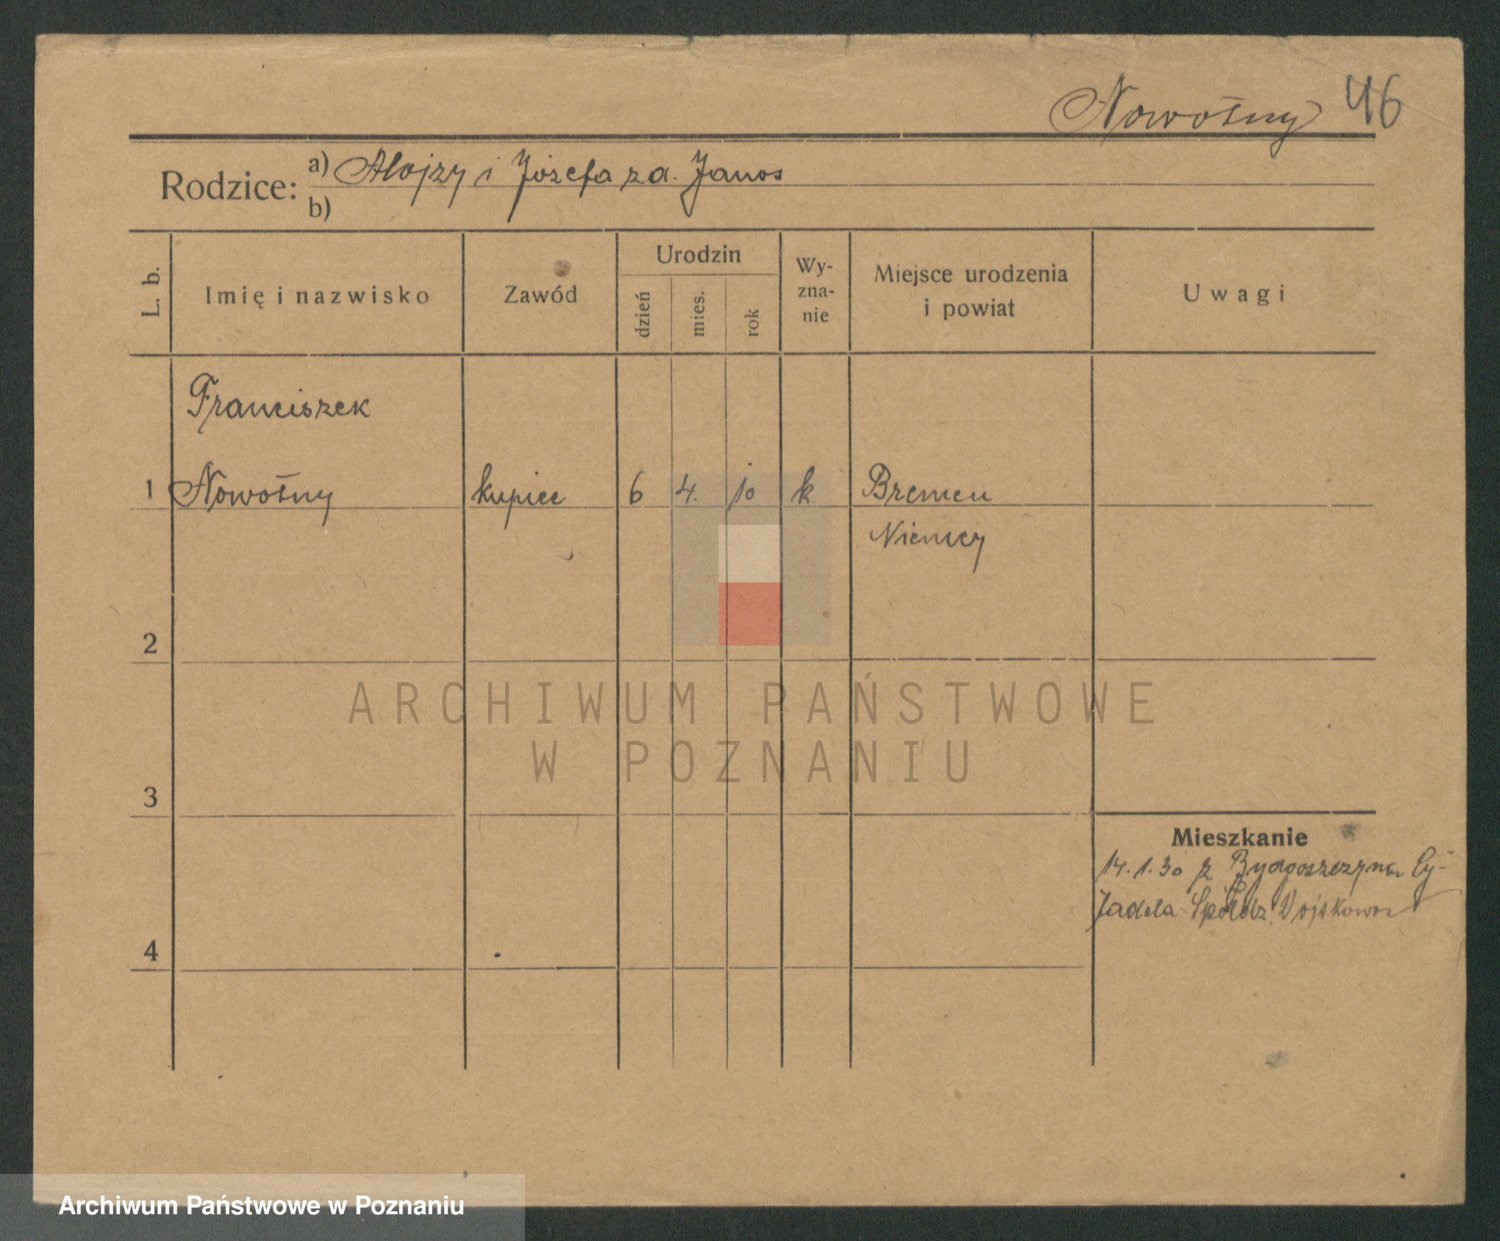 Nowotny 46
Rodzice: a) Alojzy i Józefa za. Janos
b)
L. b.
Imię i nazwisko
Zawód
Urodzin
dzień
mies.
rok
Wy-
zna-
nie
Miejsce urodzenia
i powiat
Uwagi
Franciszek
1 Nowotny kupiec 6 4. 10 k Bremen
Niemcy
2
3
4
Mieszkanie
14.1.30 z Bydgoszczy na
Jadela Spółdz. Wojskowa
ARCHIWUM PAŃSTWOWE
W POZNANIU
Archiwum Państwowe w Poznaniu